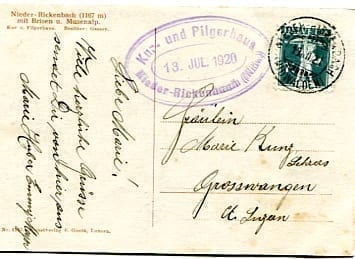 Nieder-Rickenbach (1167 m)
mit Brisen u. Musenalp.
Kur u. Pilgerhaus. Besitzer:
Kur- und Pilgerhaus
13. JUL. 1920
Nieder-Rickenbach
Liebe Marie!
Viele herzliche Grüsse
sendet Dir von hier aus
Marie Huber
Fräulein
Marie Kunz
Grosswangen
Kt. Luzern